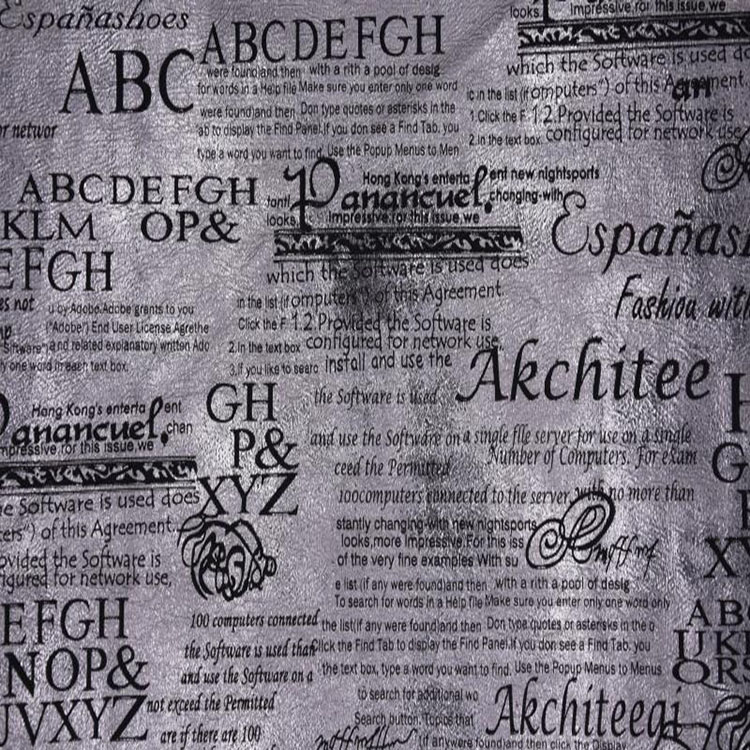 Españashoes
ABCDEFGH
ABC
were found)and then with a rith a pool of desig
for words in a Help file Make sure you enter only one word
were found)and then Don type quotes or asterisks in the
ab to display the Find Panel.If you don see a Find Tab, you
type a word you want to find. Use the Popup Menus to Men
looks,
Impressive.for this issue,we
which the Software is used do
in the list (if omputers") of this Agreement
an
1.Click the F 1.2 Provided the Software is
2.In the text box configured for network use,
or networ
ABCDEFGH
KLM OP&
EFGH
Hong Kong's enterta ent new nightsports
Panancuel, changing-with
looks, Impressive.for this issue,we
which the Software is used does
in the list (if omputers") of this Agreement.
Click the F 1.2 Provided the Software is
2.In the text box configured for network use,
3.If you like to searc install and use the
Españas
Fashion wit
Akchitee
es not
u by Adobe.Adobe grants to you
("Adobe") End User License Agrethe
Siftware" and related explanatory written Ado
y one word in each text box.
GH
P&
XYZ
the Software is used
and use the Software on a single file server for use on a single
ceed the Permitted Number of Computers. For exam
100computers connected to the server, with no more than
Hong Kong's enterta ent
Panancuel, chan
mpressive for this issue,we
e Software is used does
ters") of this Agreement.
ovided the Software is
figured for network use,
stantly changing-with new nightsports
looks,more Impressive.For this iss
of the very fine examples With su
e list(if any were found)and then with a rith a pool of desig
To search for words in a Help file Make sure you enter only one word only
the list(if any were found)and then Don type quotes or asterisks in the o
Click the Find Tab to display the Find Panel.If you don see a Find Tab, you
the text box, type a word you want to find. Use the Popup Menus to Menus
EFGH
NOP&
UVXYZ
100 computers connected
the Software is used that
and use the Software on a
not exceed the Permitted
are if there are 100
to search for additional wo
Search button. Topics that
Architeeqi
(if anywere found)and then click the Display
H
G
XY
AB
UKI
QRS